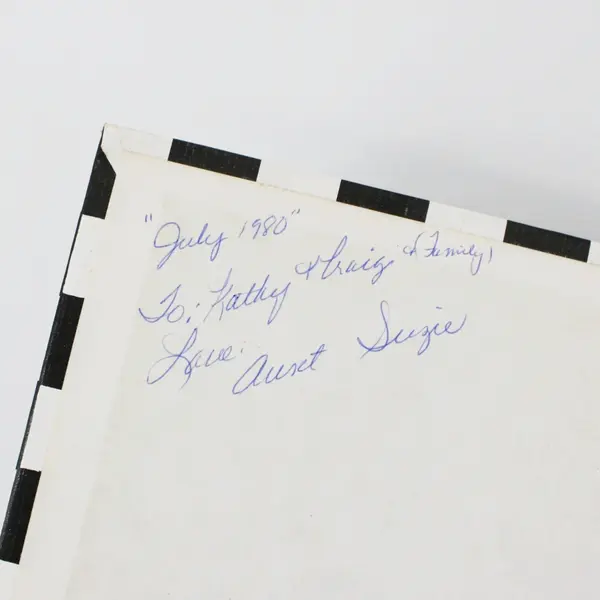 "July 1980"
To: Kathy & Craig (& Family)
Love:
Aunt Suzie